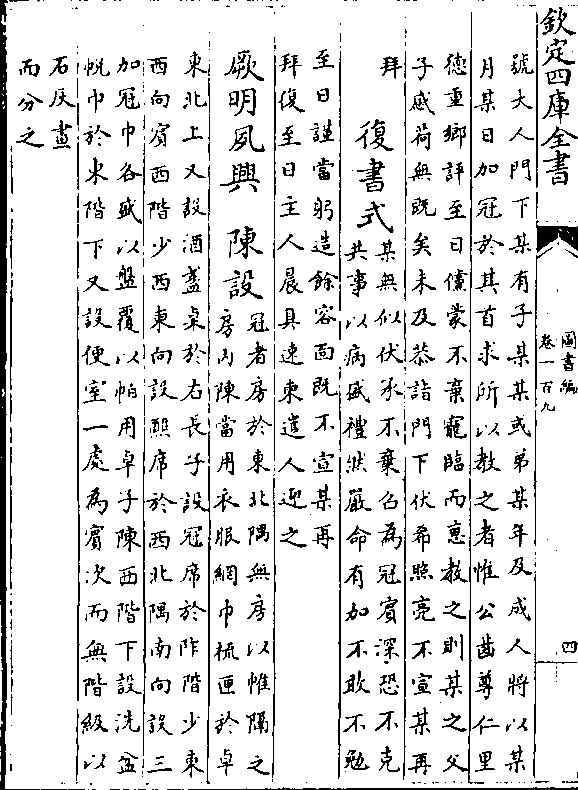 欽定四庫全書
圖書編
卷一百九
四
號大人門下某有子某某或弟某年及成人將以某
月某日加冠於其首求所以教之者惟公齒尊仁里
德重鄉評至日儻蒙不棄寵臨而惠教之則某之父
子感荷無既矣未及恭詣門下伏希照亮不宣某再
拜
復書式
某無似伏承不棄召為冠賓深恐不克
共事以病盛禮然嚴命有加不敢不勉
至日謹當躬造餘容面既不宣某再
拜復至日主人晨具速柬遣人迎之
厥明夙興 陳設
冠者房於東北隅無房以帷隔之
房内陳當用衣服網巾梳匣於卓
東北上又設酒盞桌於右長子設冠席於阼階少東
西向賓西階少西東向設醮席於西北隅南向設三
加冠巾各盛以盤覆以帕用卓子陳西階下設洗盆
帨巾於東階下又設便室一處為賓次而無階級以
石灰畫
而分之